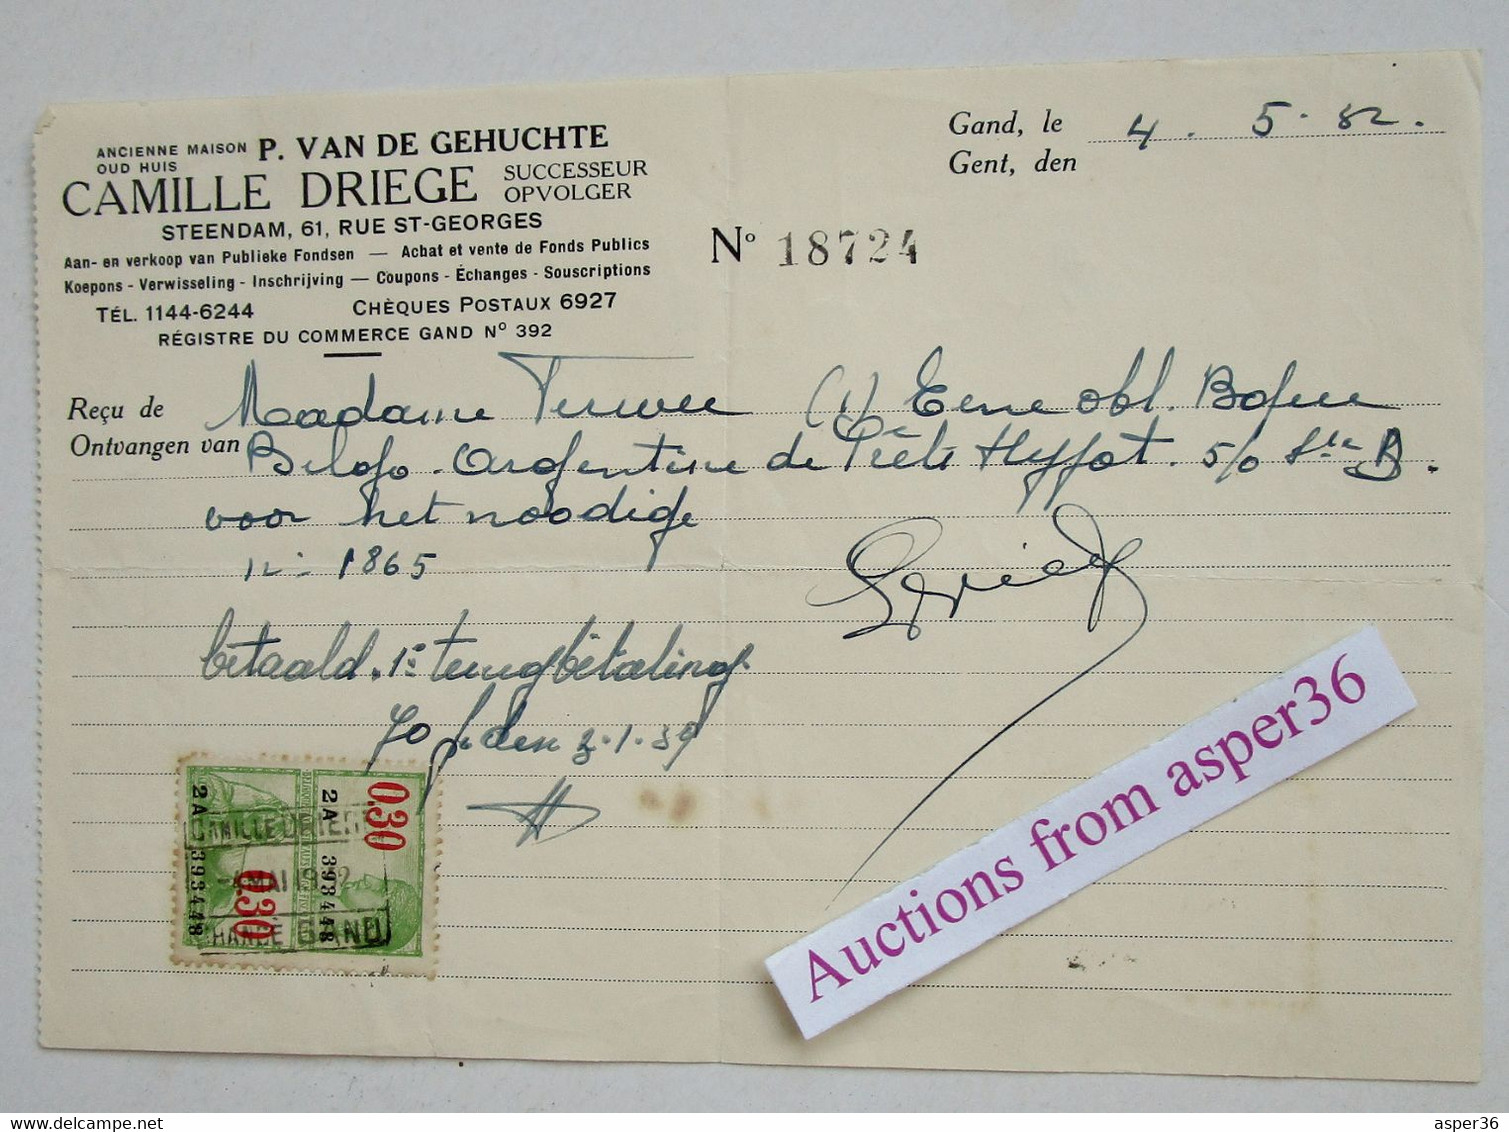 ANCIENNE MAISON P. VAN DE GEHUCHTE
OUD HUIS
CAMILLE DRIEGE SUCCESSEUR
OPVOLGER
STEENDAM, 61, RUE ST-GEORGES
Aan- en verkoop van Publieke Fondsen — Achat et vente de Fonds Publics
Koepons - Verwisseling - Inschrijving — Coupons - Échanges - Souscriptions
TÉL. 1144-6244 CHÈQUES POSTAUX 6927
RÉGISTRE DU COMMERCE GAND Nº 392
Gand, le 4. 5. 32.
Gent, den
Nº 18724
Reçu de Madame (1) Eene obl.
Ontvangen van Belgo-Argentine de 5% Ste B.
voor het noodige
12 - 1865
betaald. 1e terugbetaling
den 3.1.39
0.30
2A 393448
0.30
2A 393448
CAMILLE DRIEGE
-4 MAI 1932
CHANGE GAND
Auctions from asper36
delcampe.net
asper36